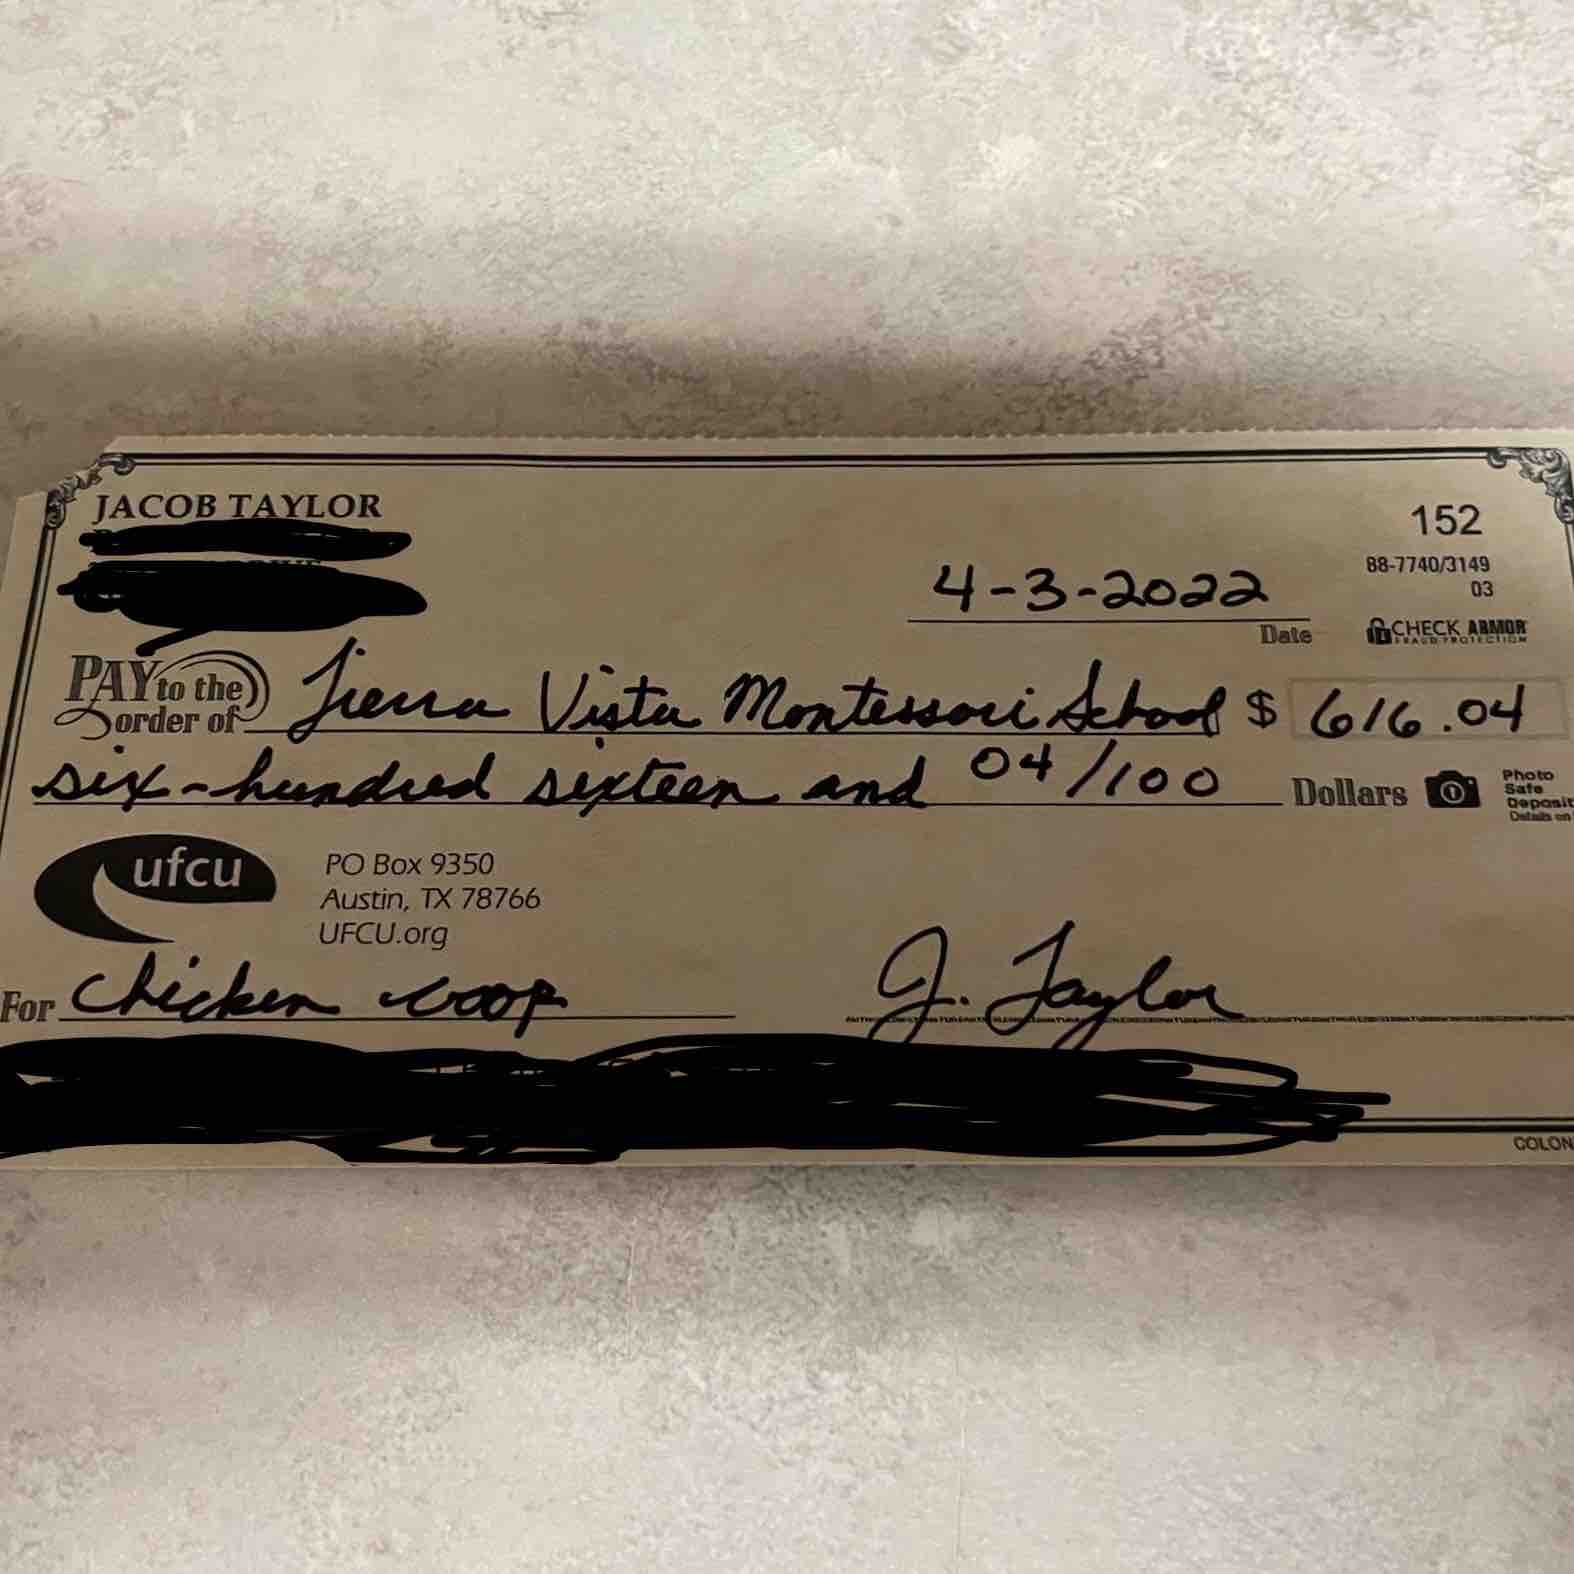 JACOB TAYLOR
152
88-7740/3149
03
4-3-2022
Date
CHECK ARMOR
FRAUD PROTECTION
PAY to the order of Tierra Vista Montessori School $ 616.04
six-hundred sixteen and 04/100 Dollars
Photo
Safe
Deposit
Details on
ufcu
PO Box 9350
Austin, TX 78766
UFCU.org
For Chicken coop
J. Taylor
COLON